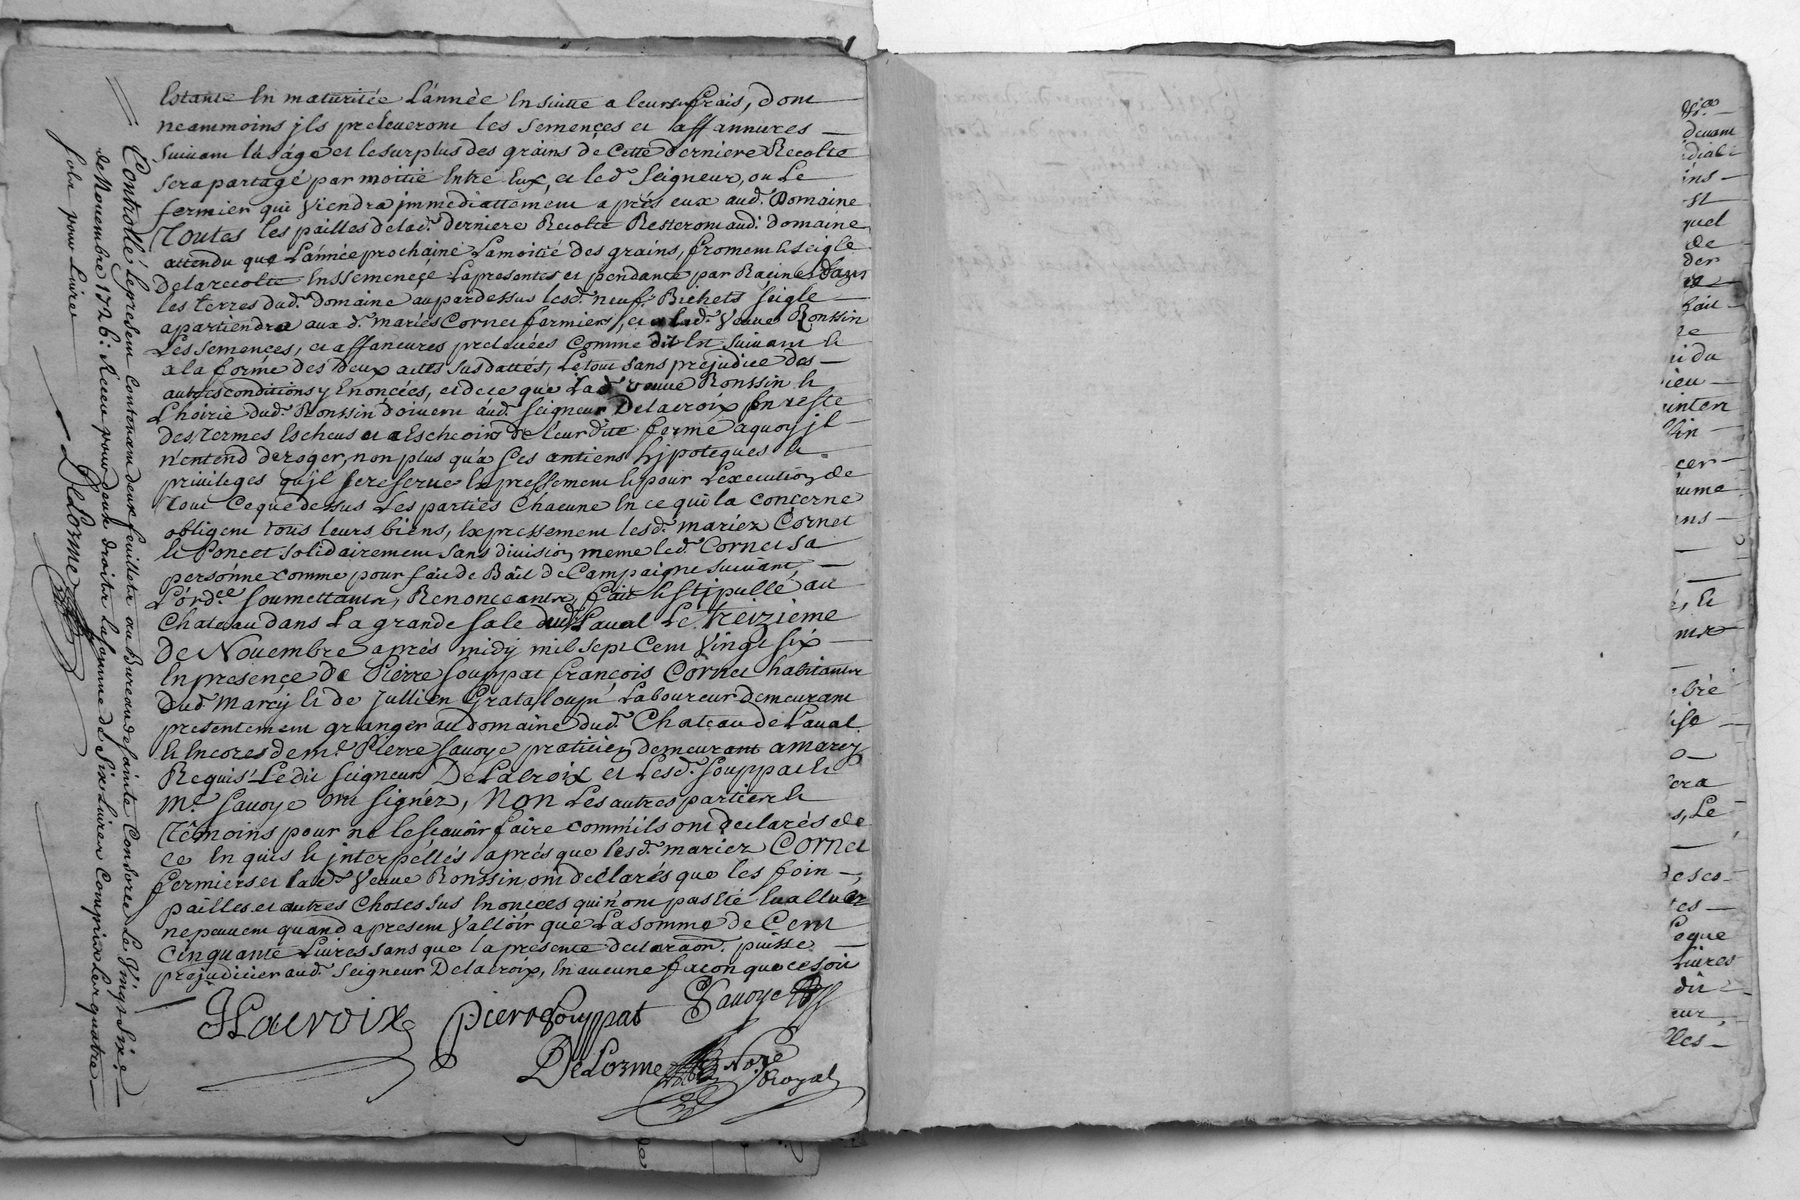 Estante En maturitée L'année En suitte a leurs frais, dont
neammoins jls preleueront les semences et affannures
suiuant l'usage et le surplus des grains de Cette derniere Recolte
sera partagé par mottié Entre Eux, et led. Seigneur, ou Le
fermier qui Viendra jmmediattement aprés eux aud. Domaine
Toutes les pailles de lad. derniere Recolte Resteront aud. domaine
attendu que L'année prochaine La moitié des grains, froment et seigle
De la recolte Enssemencé La presentes et pendante par Racines dans
les terres dud. Domaine au par dessus lesd. neuf Bichets seigle
apartiendra aux d. mariés Cornet fermiers, et a lad. Veuue Ronssin
Les semences, et affaneures preleuées Comme dit Est suiuant et
a la forme des deux actes susdattés, Le tout sans prejudice des
autres conditions y Enoncées, et de ce que Lad. veuue Ronssin et
L'hoirie dud. Ronssin doiuent aud. seigneur Delacroix En reste
des termes Escheus et a Escheoir de leur dite ferme a quoy jl
n'entend deroger, non plus qu'a ses antiens hjpoteques et
priuileges qu'jl se reserue Expressement et pour L'execution de
tout Ce que dessus Les parties Chacune En ce qui la concerne
obligent tous leurs biens, Expressement lesd. mariez Cornet
et Poncet solidairement sans diuision, meme led. Cornet sa
personne comme pour fait de Bail de Campaigne suiuant
L'ord.ce soumettants, Renonceants, fait et stipullé au
Chateau dans La grande sale dud. Laual Le treizieme
De Nouembre aprés midy mil sept Cent Vingt six
En presence de Pierre souppat françois Cornet habitants
Dud. Marcy et de Jullien Grataloup Laboureur demeurant
presentement granger au domaine dud. Chateau de Laual
et Encores de m.e Pierre Sauoye praticien demeurant a marcy
Requis Le dit seigneur Delacroix et Lesd. souppat et
m.e Sauoye ont signéz, Non Les autres parties et
Témoins pour ne le scauoir faire comm'ils ont declarés de
ce En quis et jnterpellés aprés que lesd. mariez Cornet
fermiers et lad. Veuue Ronssin ont declarés que les foin
pailles et autres choses sus Enoncés qui n'ont pas Eté Euallués
ne peuuent quand a present Valloir que La somme de Cent
Cinquante Liures sans que la presente declaraõn puisse
prejudicier aud. Seigneur Delacroix, En aucune façon que ce soit
JLacroix Pierre Souppat Sauoye
DeLorme No.re Royal
Controllé le present contenant deux feuillets au Bureau de sainte Consorce Le Vingt Six.e
de Nouembre 1726: Receu pour deux droits la somme de Six Liures Compris Les quatre
sols pour Liure
DeLorme
deuant
ins
quel
de
fait
re
ieu
cer
ans
s, Le
Liures
dit
eur
lles